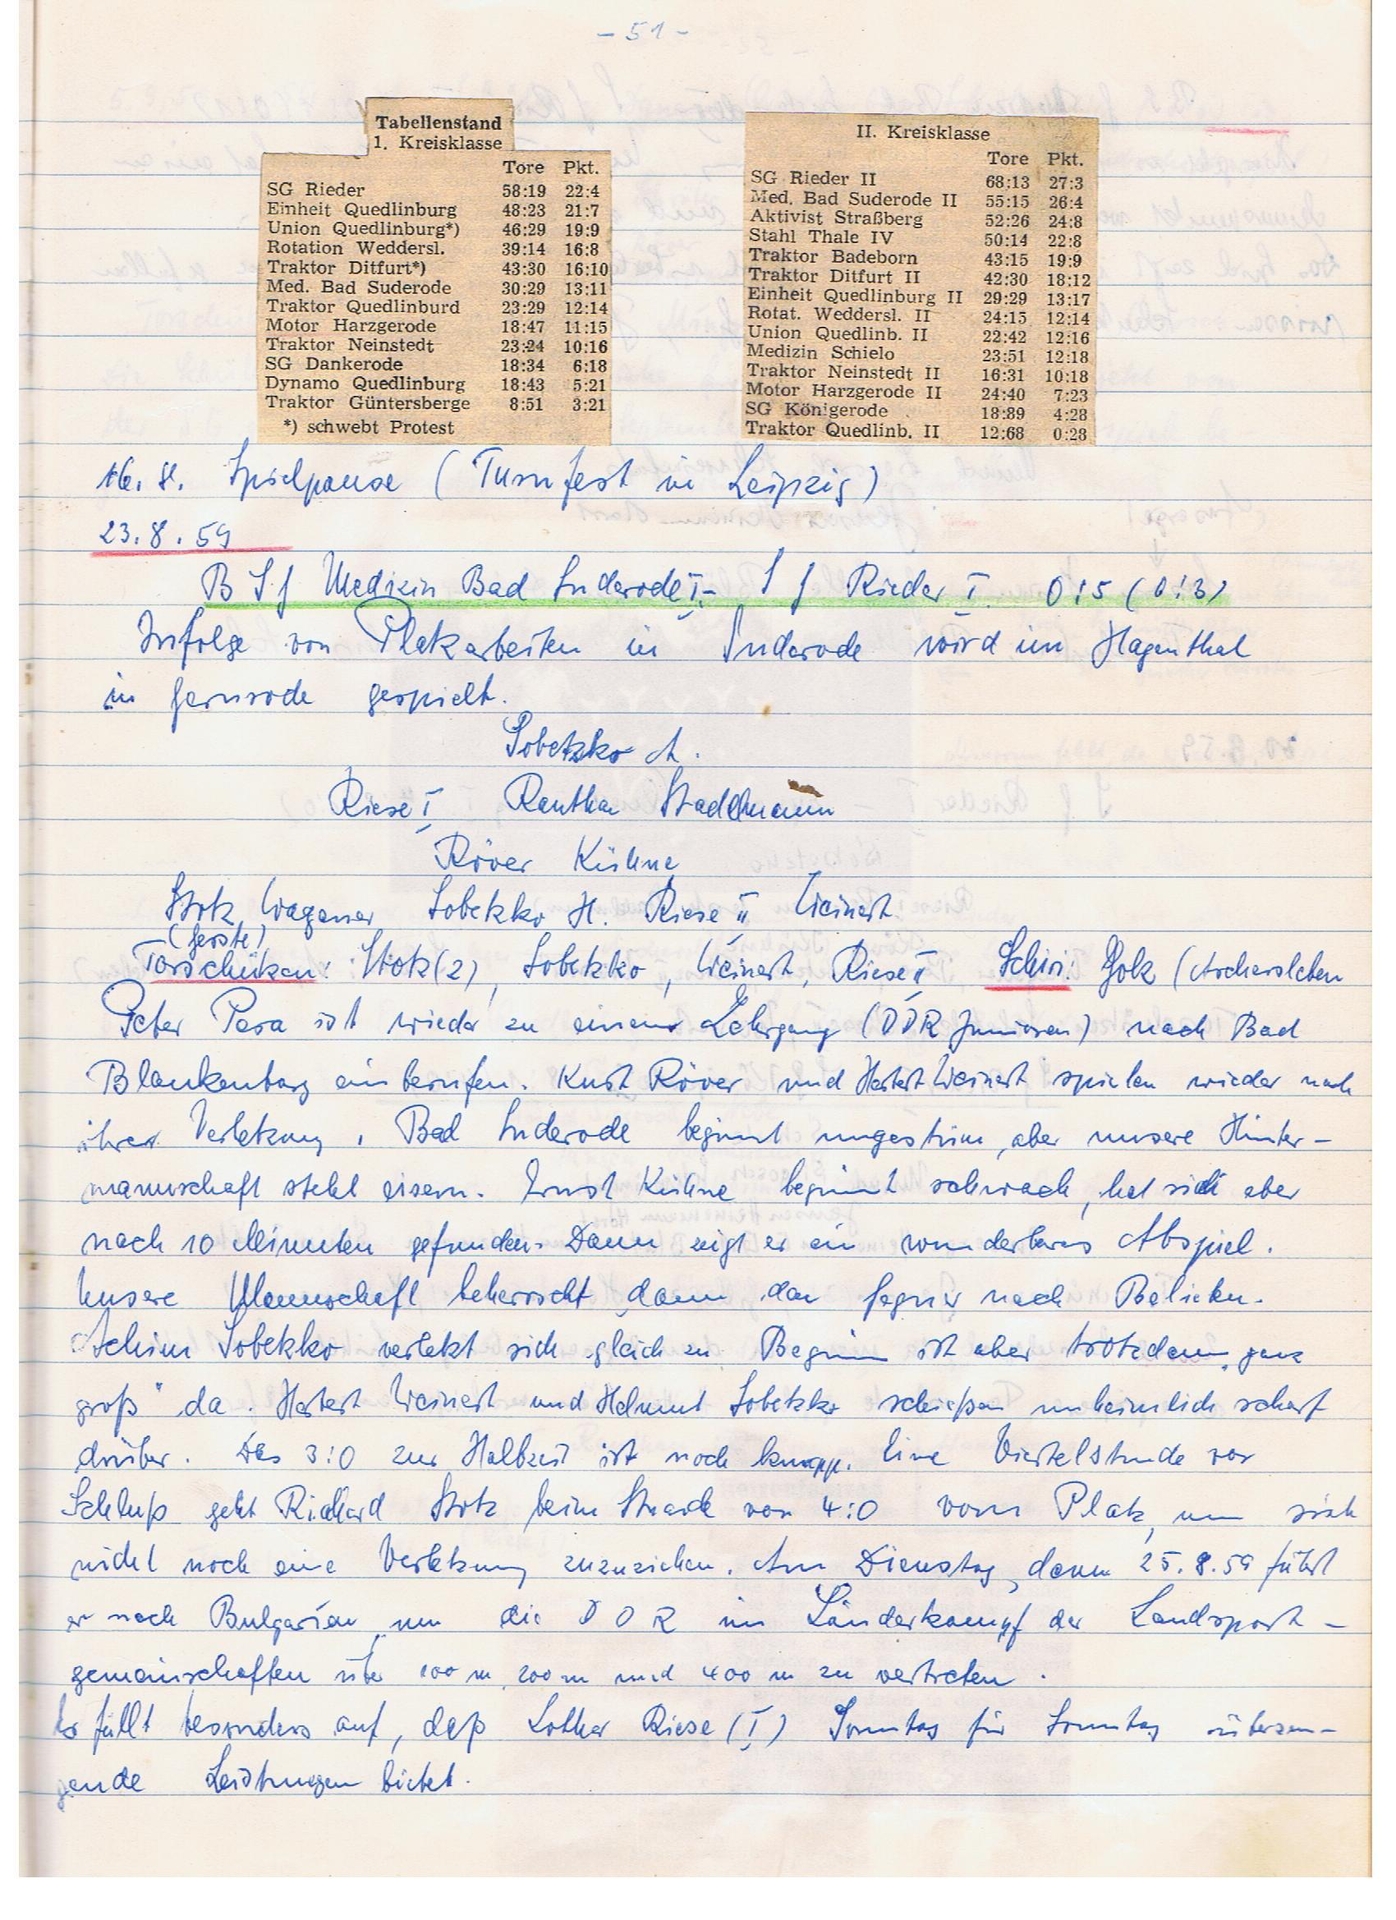 - 51 -
Tabellenstand
1. Kreisklasse
Tore Pkt.
SG Rieder 58:19 22:4
Einheit Quedlinburg 48:23 21:7
Union Quedlinburg*) 46:29 19:9
Rotation Weddersl. 39:14 16:8
Traktor Ditfurt*) 43:30 16:10
Med. Bad Suderode 30:29 13:11
Traktor Quedlinburd 23:29 12:14
Motor Harzgerode 18:47 11:15
Traktor Neinstedt 23:24 10:16
SG Dankerode 18:34 6:18
Dynamo Quedlinburg 18:43 5:21
Traktor Güntersberge 8:51 3:21
*) schwebt Protest
II. Kreisklasse
Tore Pkt.
SG Rieder II 68:13 27:3
Med. Bad Suderode II 55:15 26:4
Aktivist Straßberg 52:26 24:8
Stahl Thale IV 50:14 22:8
Traktor Badeborn 43:15 19:9
Traktor Ditfurt II 42:30 18:12
Einheit Quedlinburg II 29:29 13:17
Rotat. Weddersl. II 24:15 12:14
Union Quedlinb. II 22:42 12:16
Medizin Schielo 23:51 12:18
Traktor Neinstedt II 16:31 10:18
Motor Harzgerode II 24:40 7:23
SG Königerode 18:89 4:28
Traktor Quedlinb. II 12:68 0:28
16.8. Spielpause (Turnfest in Leipzig)
23.8.59
BSG Medizin Bad Suderode I - SG Rieder I 0:5 (0:3)
Infolge von Platzarbeiten in Suderode wird im Hagenthal
in Gernrode gespielt.
Sobetzko A.
Riese I Rauthe Stadelmann
Röver Kühne
Stotz Wagener Sobetzko H. Riese II Weinert
(Gerste)
Torschützen: Stotz (2), Sobetzko, Weinert, Riese II Schiri: Golz (Aschersleben
Peter Pesa ist wieder zu einem Lehrgang (DDR Junioren) nach Bad
Blankenburg einberufen. Kurt Röver und Herbert Weinert spielen wieder nach
ihrer Verletzung. Bad Suderode beginnt ungestüm, aber unsere Hinter-
mannschaft steht eisern. Ernst Kühne beginnt schwach, hat sich aber
nach 10 Minuten gefunden. Dann zeigt er ein wunderbares Abspiel.
Unsere Mannschaft beherrscht dann den Gegner nach Belieben.
Achim Sobetzko verletzt sich gleich zu Beginn ist aber trotzdem „ganz
groß" da. Herbert Weinert und Helmut Sobetzko schießen unheimlich scharf
drüber. Das 3:0 zur Halbzeit ist noch knapp. Eine Viertelstunde vor
Schluß geht Richard Stotz beim Stande von 4:0 vom Platz, um sich
nicht noch eine Verletzung zuzuziehen. Am Dienstag, dem 25.8.59 fährt
er nach Bulgarien um die DDR im Länderkampf der Landsport-
gemeinschaften über 100 m, 200 m und 400 m zu vertreten.
Es fällt besonders auf, daß Lothar Riese (I) Sonntag für Sonntag überzeu-
gende Leistungen bietet.